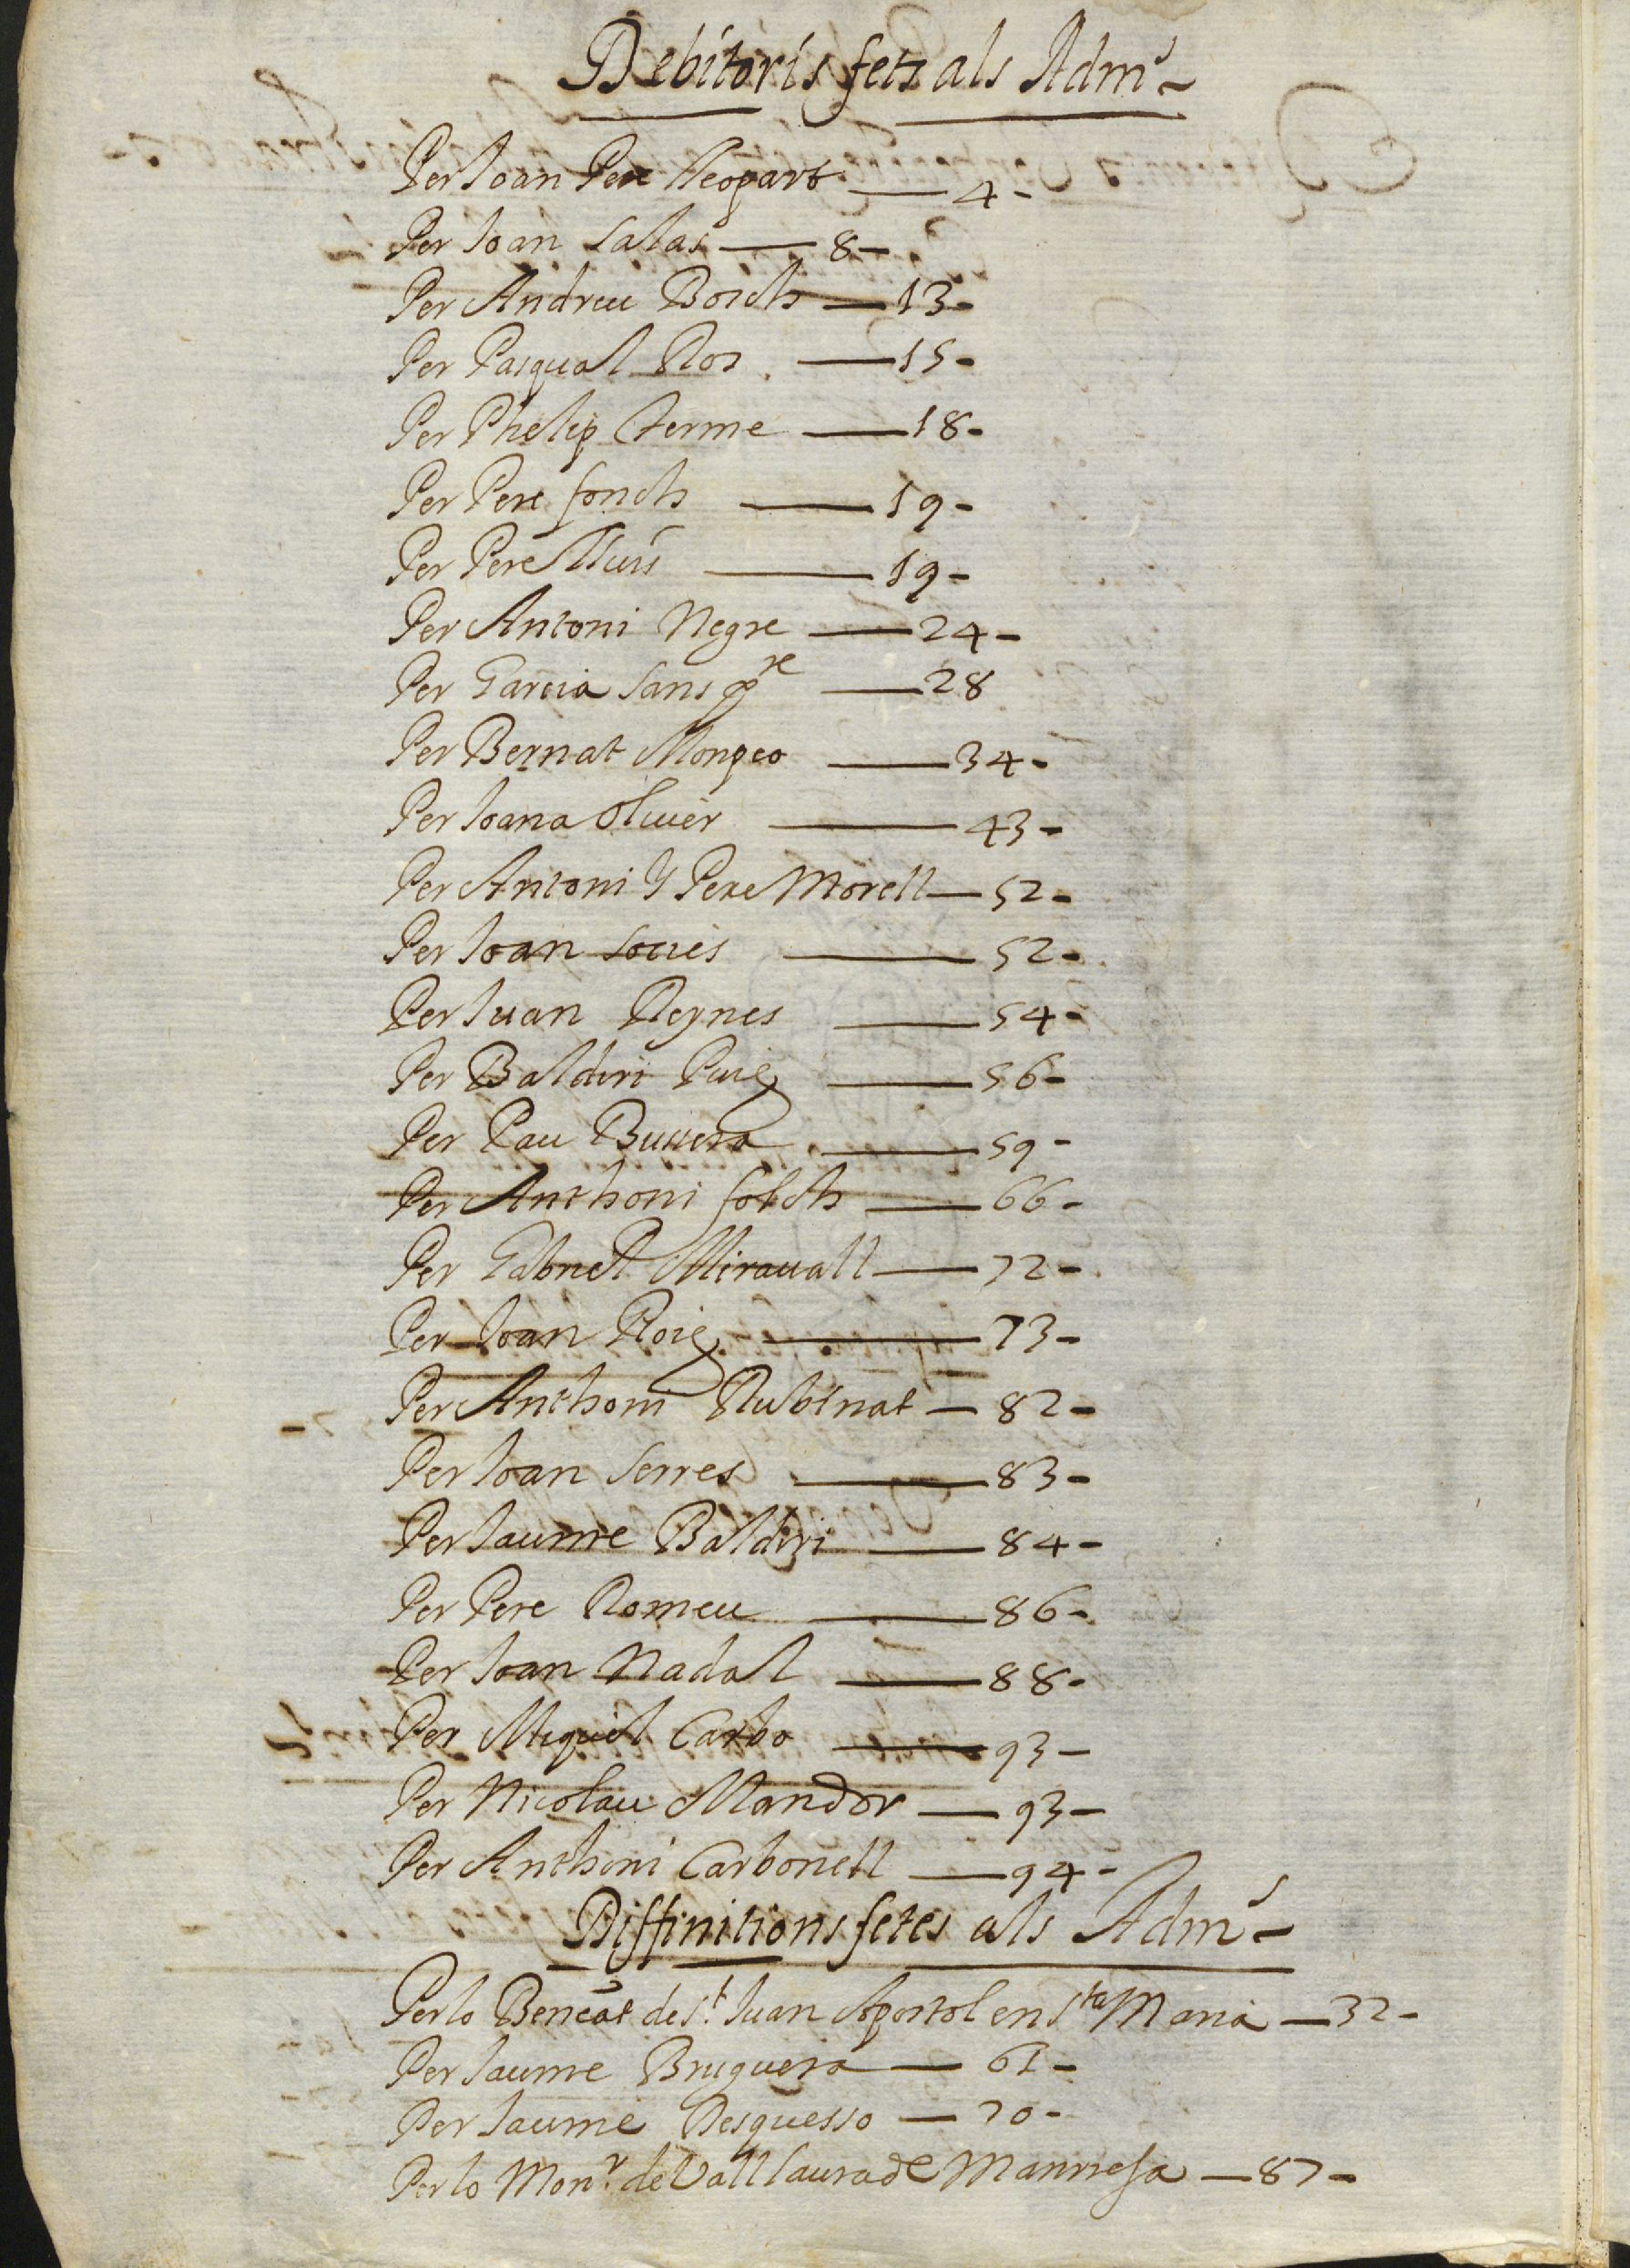 Debitoris fets als Adm.rs
Per Joan Pere Lleopart — 4 -
Per Joan Salas — 8 -
Per Andreu Bosch — 13 -
Per Pasqual Ros — 15 -
Per Phelip Ferme — 18 -
Per Pere fonch — 19 -
Per Pere Lluis — 19 -
Per Antoni Negre — 24 -
Per Garcia Sans — 28
Per Bernat Mongeo — 34 -
Per Joana Oliuer — 43 -
Per Antoni Y Pere Morell — 52 -
Per Joan Socies — 52 -
Per Juan Reynes — 54 -
Per Baldiri Puig — 56 -
Per Pau — 59 -
Per Anthoni folch — 66 -
Per Gabriel Mirauall — 72 -
Per Joan Roig — 73 -
Per Anthoni Rubinat — 82 -
Per Joan Serres — 83 -
Per Jaume Baldiri — 84 -
Per Pere Romeu — 86 -
Per Joan Nadal — 88 -
Per Miquel Carbo — 93 -
Per Nicolau Mandor — 93 -
Per Anthoni Carbonell — 94 -
Diffinitions fetes als Adm.rs
Per lo Benefat de St. Juan Apostol en Sta Maria — 32 -
Per Jaume Bruguera — 61 -
Per Jaume Desquesso — 70 -
Per lo Monr. de Vall laura de Manrresa — 87 -